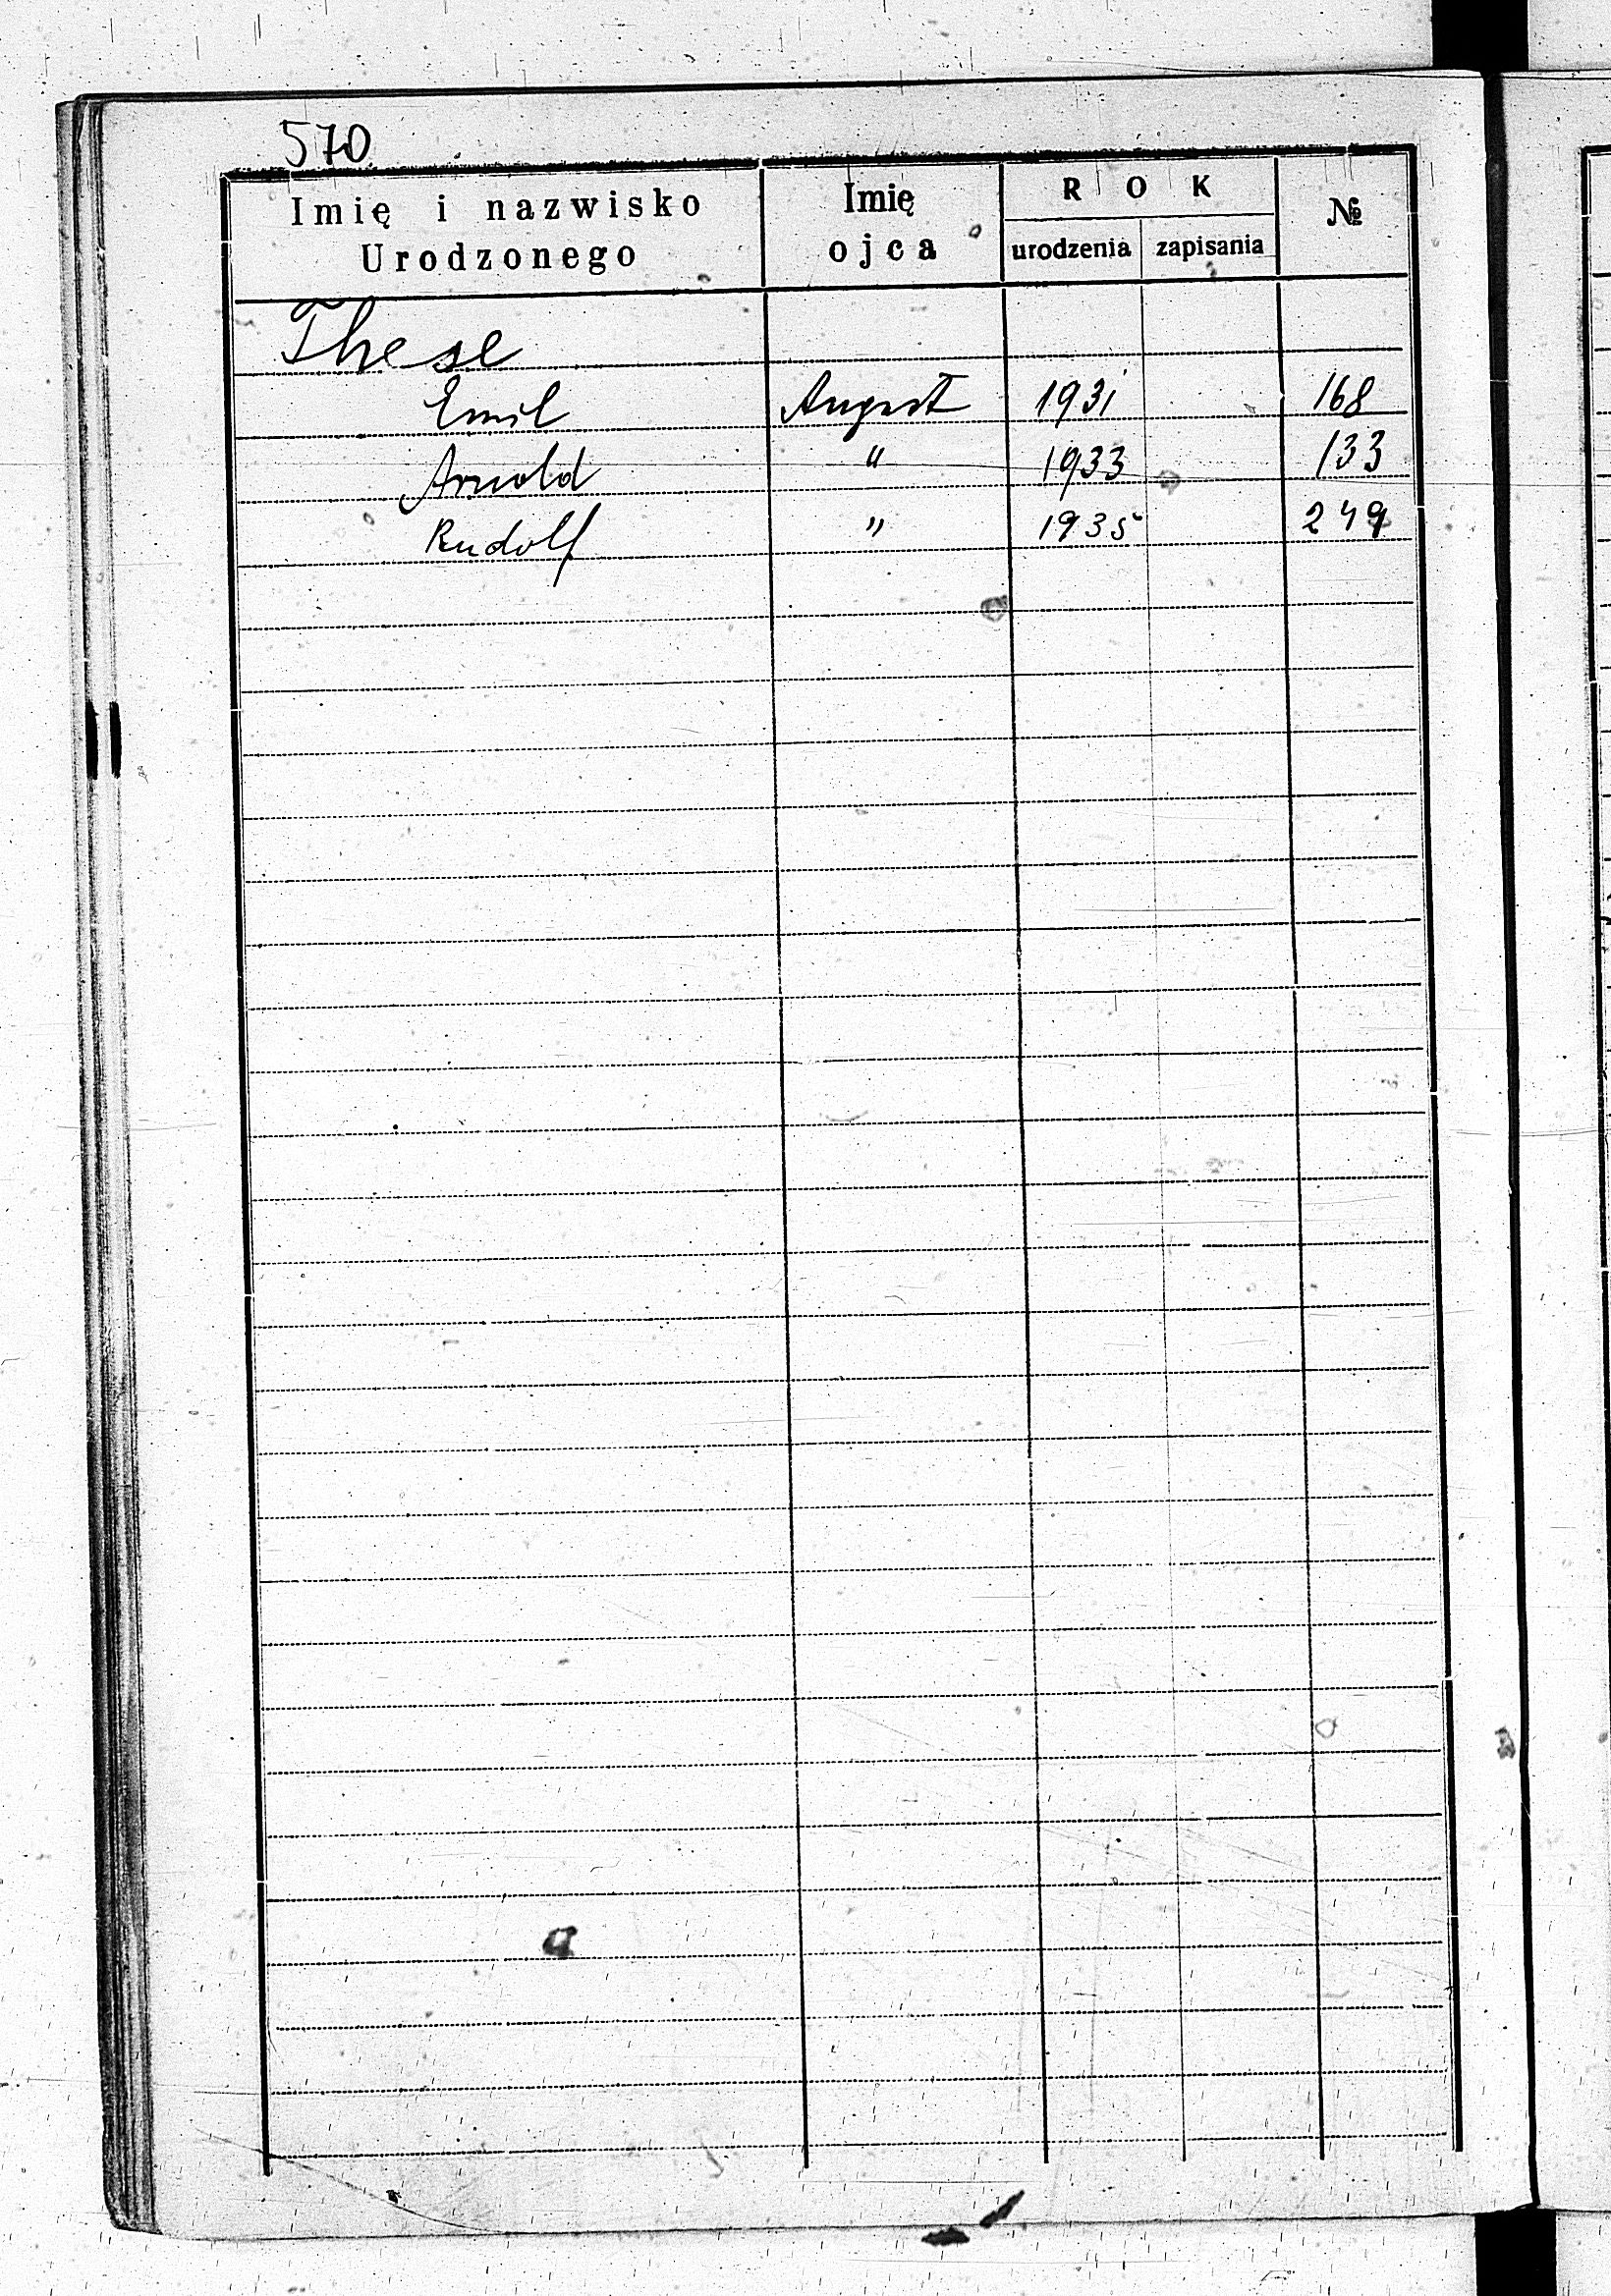 570
Imię i nazwisko Urodzonego
Imię ojca
ROK
urodzenia zapisania
№
These
Emil August 1931 168
Arnold " 1933 133
Rudolf " 1935 249